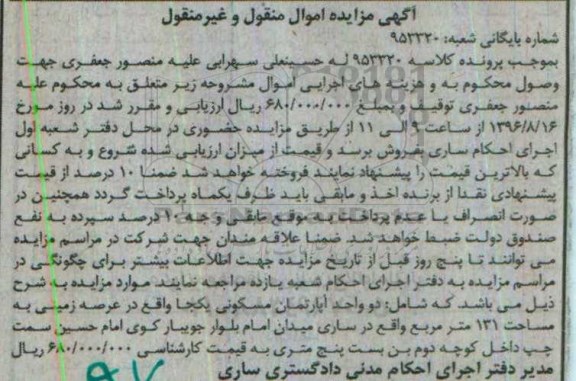 آگهی مزایده اموال منقول و غیرمنقول
شماره بایگانی شعبه: ۹۵۳۳۲۰
بموجب پرونده کلاسه ۹۵۳۳۲۰ له حسینعلی سهرابی علیه منصور جعفری جهت
وصول محکوم به و هزینه های اجرایی اموال مشروحه زیر متعلق به محکوم علیه
منصور جعفری توقیف و بمبلغ ۶۸۰/۰۰۰/۰۰۰ ریال ارزیابی و مقرر شد در روز مورخ
۱۳۹۶/۸/۱۶ از ساعت ۹ الی ۱۱ از طریق مزایده حضوری در محل دفتر شعبه اول
اجرای احکام ساری بفروش برسد و قیمت از میزان ارزیابی شده شروع و به کسانی
که بالاترین قیمت را پیشنهاد نمایند فروخته خواهد شد ضمنا ۱۰ درصد از قیمت
پیشنهادی نقدا از برنده اخذ و مابقی باید ظرف یکماه پرداخت گردد همچنین در
صورت انصراف یا عدم پرداخت به موقع مابقی وجه ۱۰ درصد سپرده به نفع
صندوق دولت ضبط خواهد شد ضمنا علاقه مندان جهت شرکت در مراسم مزایده
می توانند تا پنج روز قبل از تاریخ مزایده جهت اطلاعات بیشتر برای چگونگی در
مراسم مزایده به دفتر اجرای احکام شعبه یازده مراجعه نمایند. موارد مزایده به شرح
ذیل می باشد که شامل: دو واحد آپارتمان مسکونی یکجا واقع در عرصه زمینی به
مساحت ۱۳۱ متر مربع واقع در ساری میدان امام بلوار جویبار کوی امام حسین سمت
چپ داخل کوچه دوم بن بست پنج متری به قیمت کارشناسی ۶۸۰/۰۰۰/۰۰۰ ریال
مدیر دفتر اجرای احکام مدنی دادگستری ساری